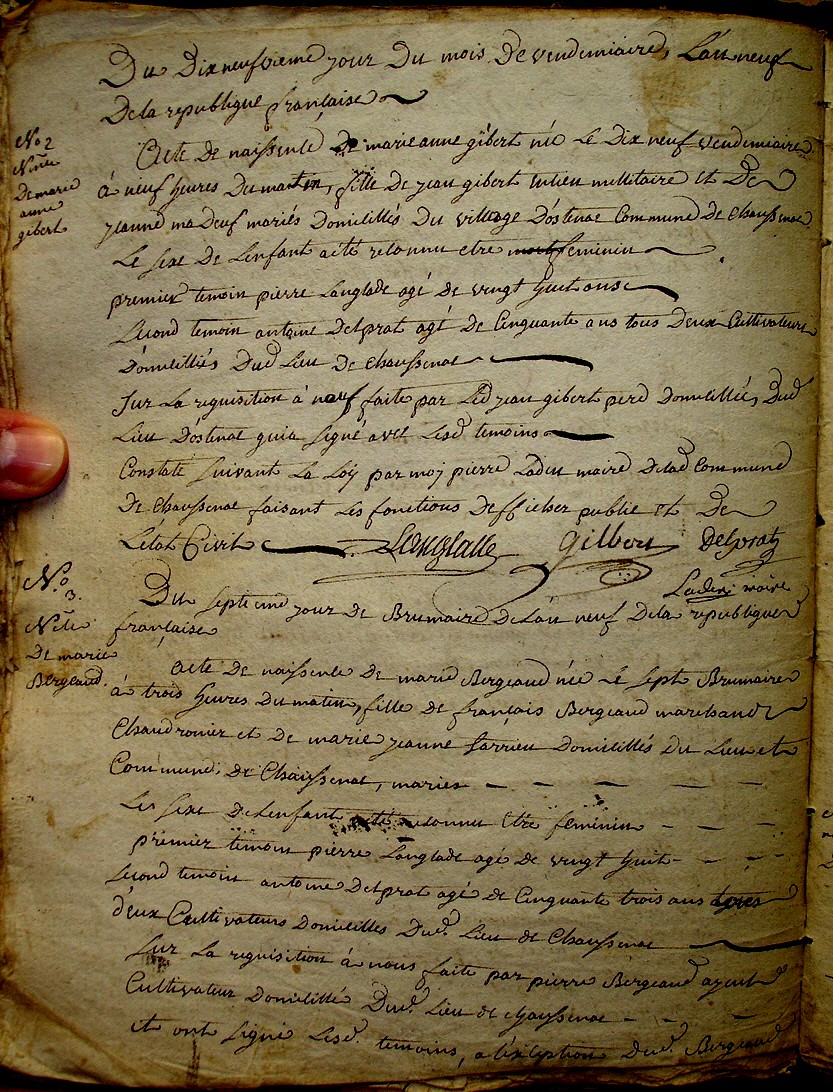 Du Dixneufvieme jour Du mois De vendemiaire, L'an neuf
De la republique française
No 2
N.ce
De marie
anne
gibert
Acte De naissence De marie anne gibert née Le Dix neuf vendemiaire
à neuf heures Du matin, fille De jean gibert encien millitaire et De
jeanne madeuf mariés Domicilliés Du village D'ostenac Commune De Chaussenac
Le sexe De L'enfant a été reconnu etre feminin
premier temoin pierre Langlade agé De vingt huit ans
second temoin antoine Delprat agé De Cinquante ans tous Deux Cultivateurs
Domicilliés Dud Lieu De Chaussenac
Sur La requisition à nous faite par Led jean gibert pere Domicillié, Dud
Lieu D'ostenac qui a signé avec Lesd temoins
Constaté suivant La Loy par moy pierre Laden maire De lad Commune
De Chaussenac faisant Les fonctions D'officier public et De
L'etat Civil Langlade Gilbert Delprat
Laden maire
No
3.
N.ce
De marie
Bergeaud.
Du septieme jour De Brumaire De L'an neuf De la republique
française
Acte De naissence De marie Bergeaud née Le sept Brumaire
à trois heures Du matin, fille De françois Bergeaud marchand
Chaudronier et De marie jeanne Sarrieu Domicilliés Du Lieu et
Commune, De Chaussenac, mariés
Le sexe De L'enfant a été reconnu etre feminin
premier temoin pierre Langlade agé De vingt huit
second temoin antoine Delprat agé De Cinquante trois ans
Deux Cultivateurs Domicilles Dud. Lieu De Chaussenac
Sur La requisition à nous faite par pierre Bergeaud ayeul
Cultivateur Domicillié Dud. Lieu De Chaussenac
et ont signé Lesd. temoins, a L'exception Dud. Bergeaud